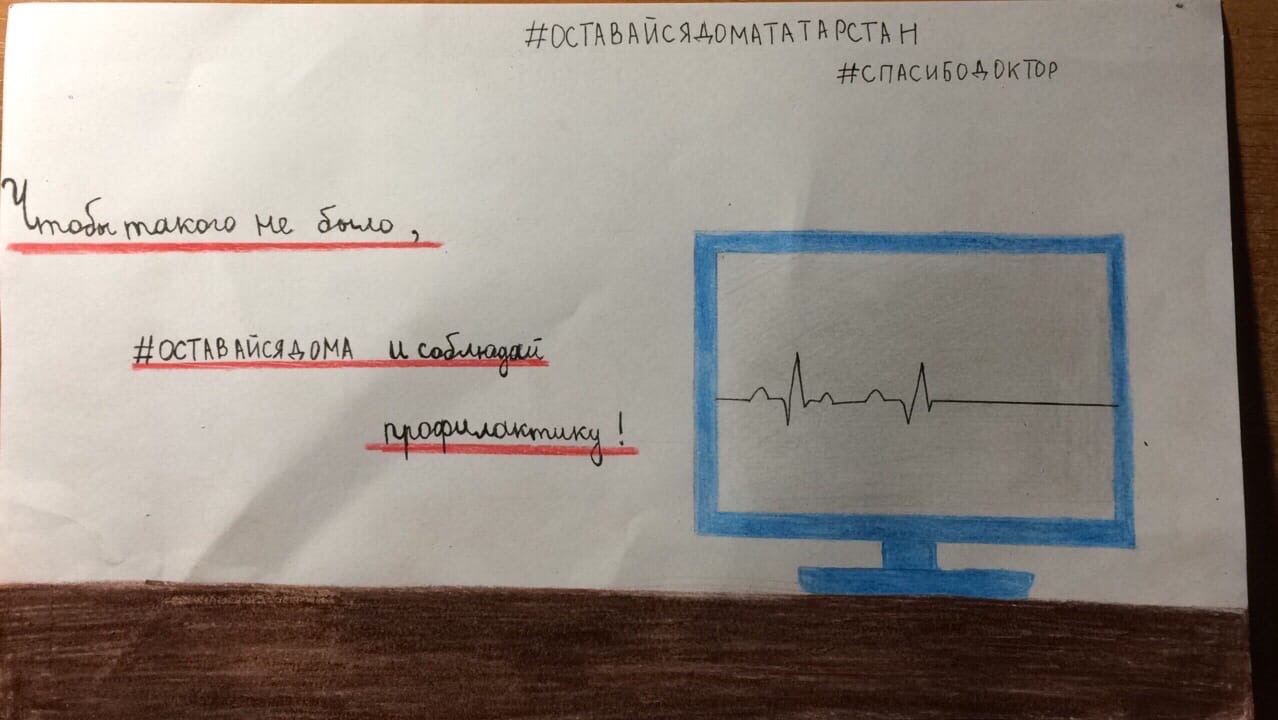 #ОСТАВАЙСЯДОМАТАТАРСТАН
#СПАСИБОДОКТОР
Чтобы такого не было,
#ОСТАВАЙСЯДОМА и соблюдай
профилактику!